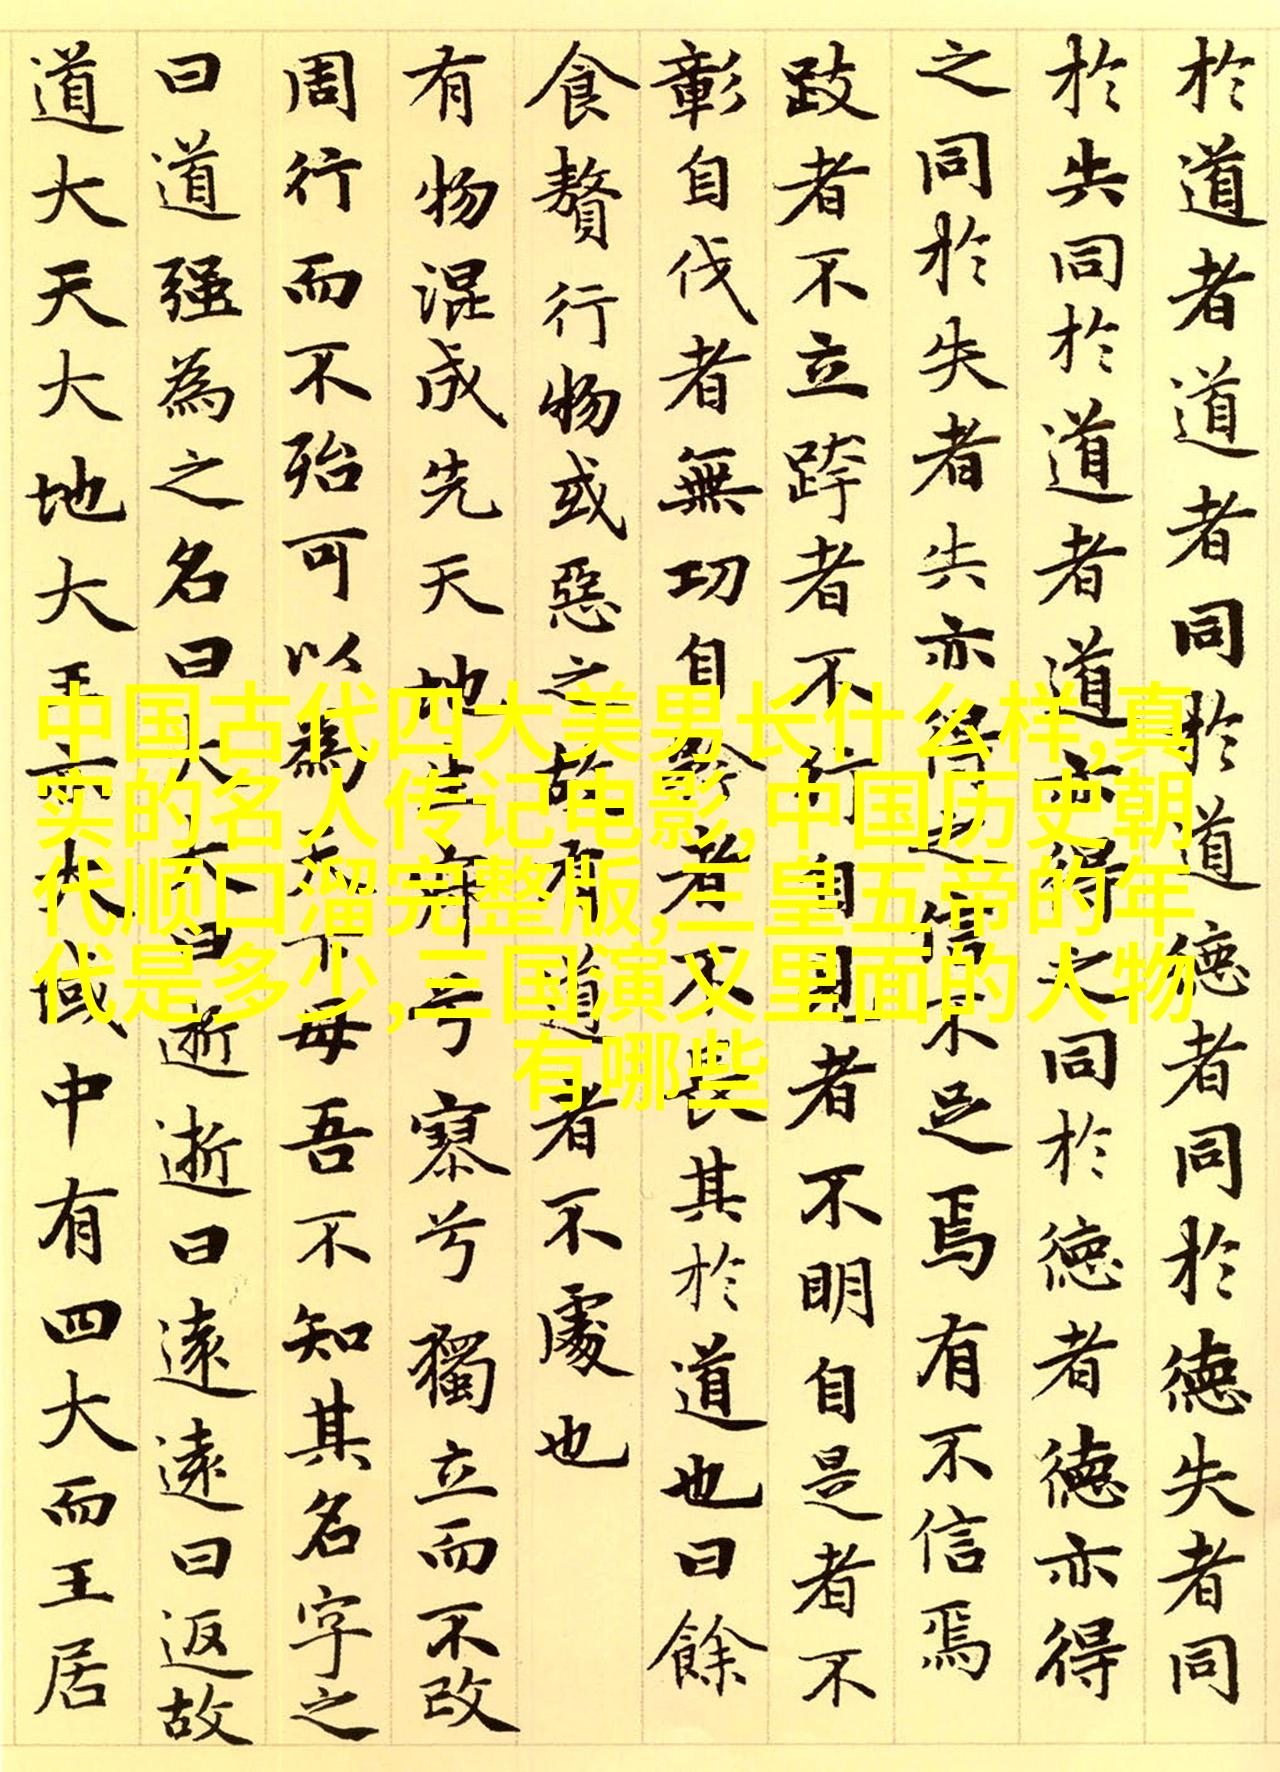 於道者道者同於道德者同於德失者同
於失同於道者道亦得之同於德者德亦得
之同於失者失亦得之信不足焉有不信焉
跂者不立跨者不行自見者不明自是者不
彰自伐者無功自矜者不長其於道也曰餘
食贅行物或惡之故有道者不處也
有物混成先天地生寂兮寥兮獨立而不改
周行而不殆可以為天下母吾不知其名字之
曰道强為之名曰大大曰逝逝曰遠遠曰返故
道大天大地大王亦大域中有四大而王居
中国古代四大美男长什么样,真
实的名人传记电影,中国历史朝
代顺口溜完整版,三皇五帝的年
代是多少,三国演义里面的人物
有哪些